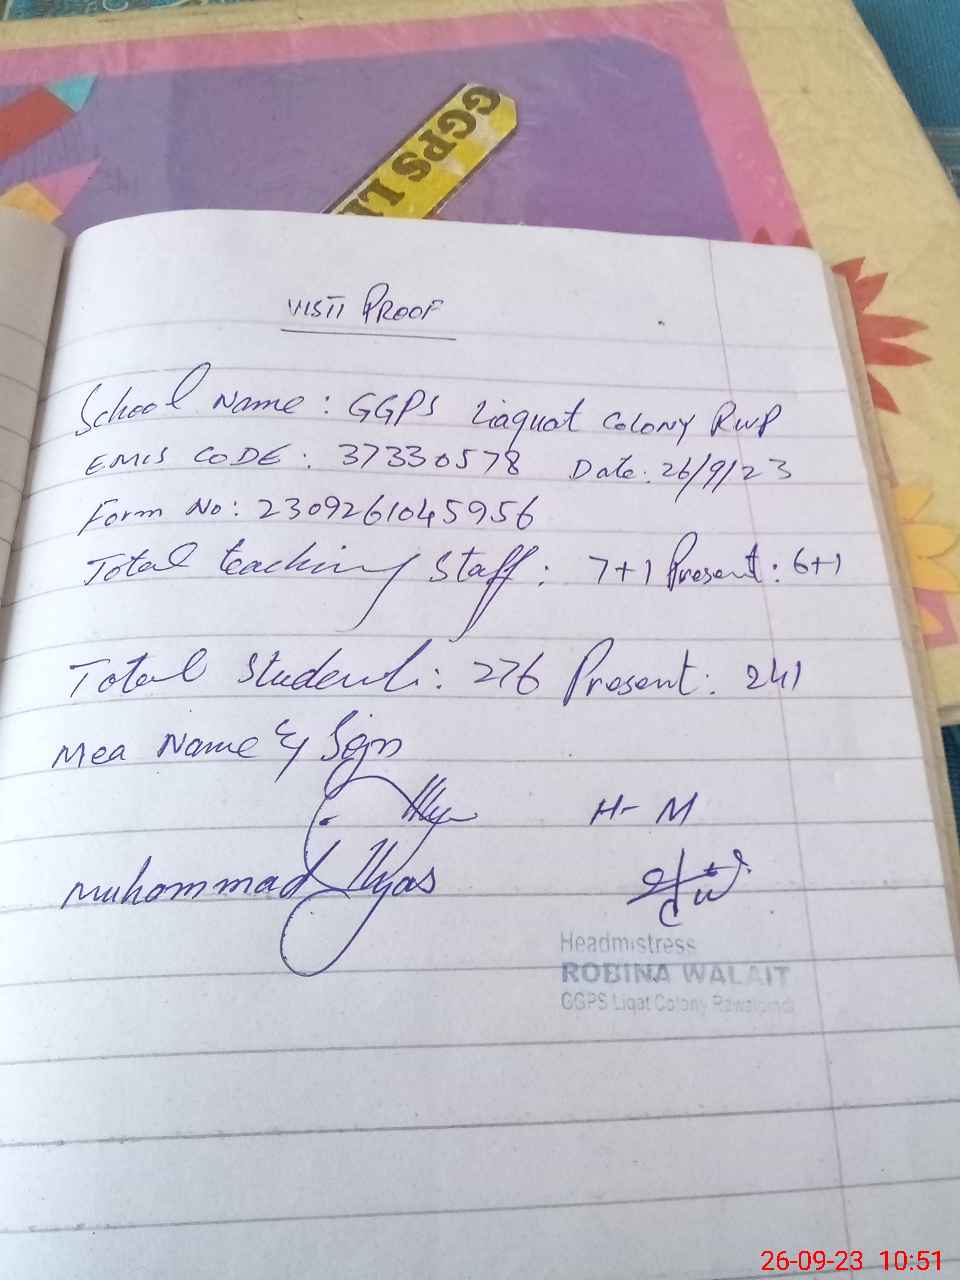 GGPS LI
VISIT PROOF
School Name: GGPS Liaquat Colony RWP
EMIS CODE: 37330578 Date: 26/9/23
Form No: 2309261045956
Total teaching Staff: 7+1 Present: 6+1
Total Students: 276 Present: 241
Mea Name & Sign
H-M
Muhammad Ilyas
Headmistress
ROBINA WALAIT
GGPS Liqat Colony Rawalpindi
26-09-23 10:51